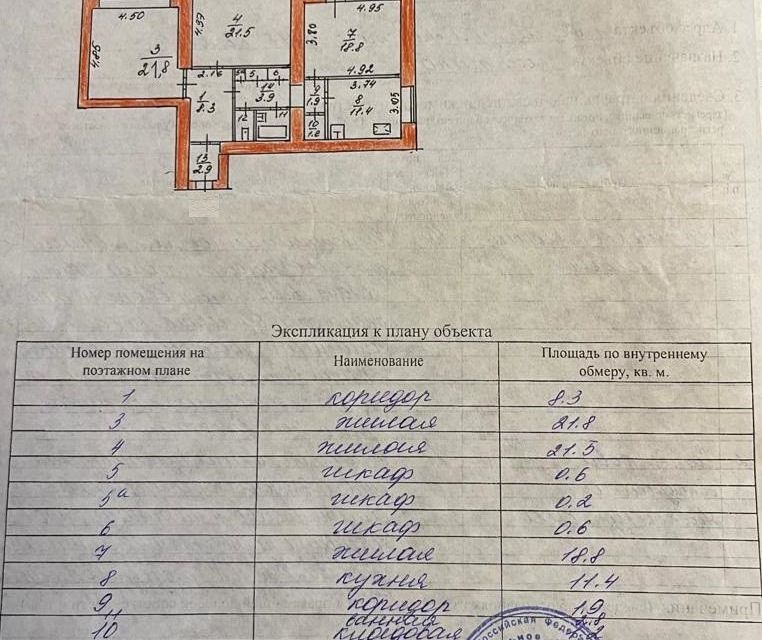 4.50
4.85
3
21.8
4.97
4
21.5
2.16
1
8.3
5а 5 6
14
3.9
12
11
13
2.9
3.80
4.95
7
18.8
4.92
9
1.9
10
1.2
3.74
8
11.4
3.05
Экспликация к плану объекта
Номер помещения на поэтажном плане Наименование Площадь по внутреннему обмеру, кв. м.
1 коридор 8.3
3 жилая 21.8
4 жилая 21.5
5 шкаф 0.6
5а шкаф 0.2
6 шкаф 0.6
7 жилая 18.8
8 кухня 11.4
9 коридор 1.9
11 ванная 2.8
10 кладовая
российская федера